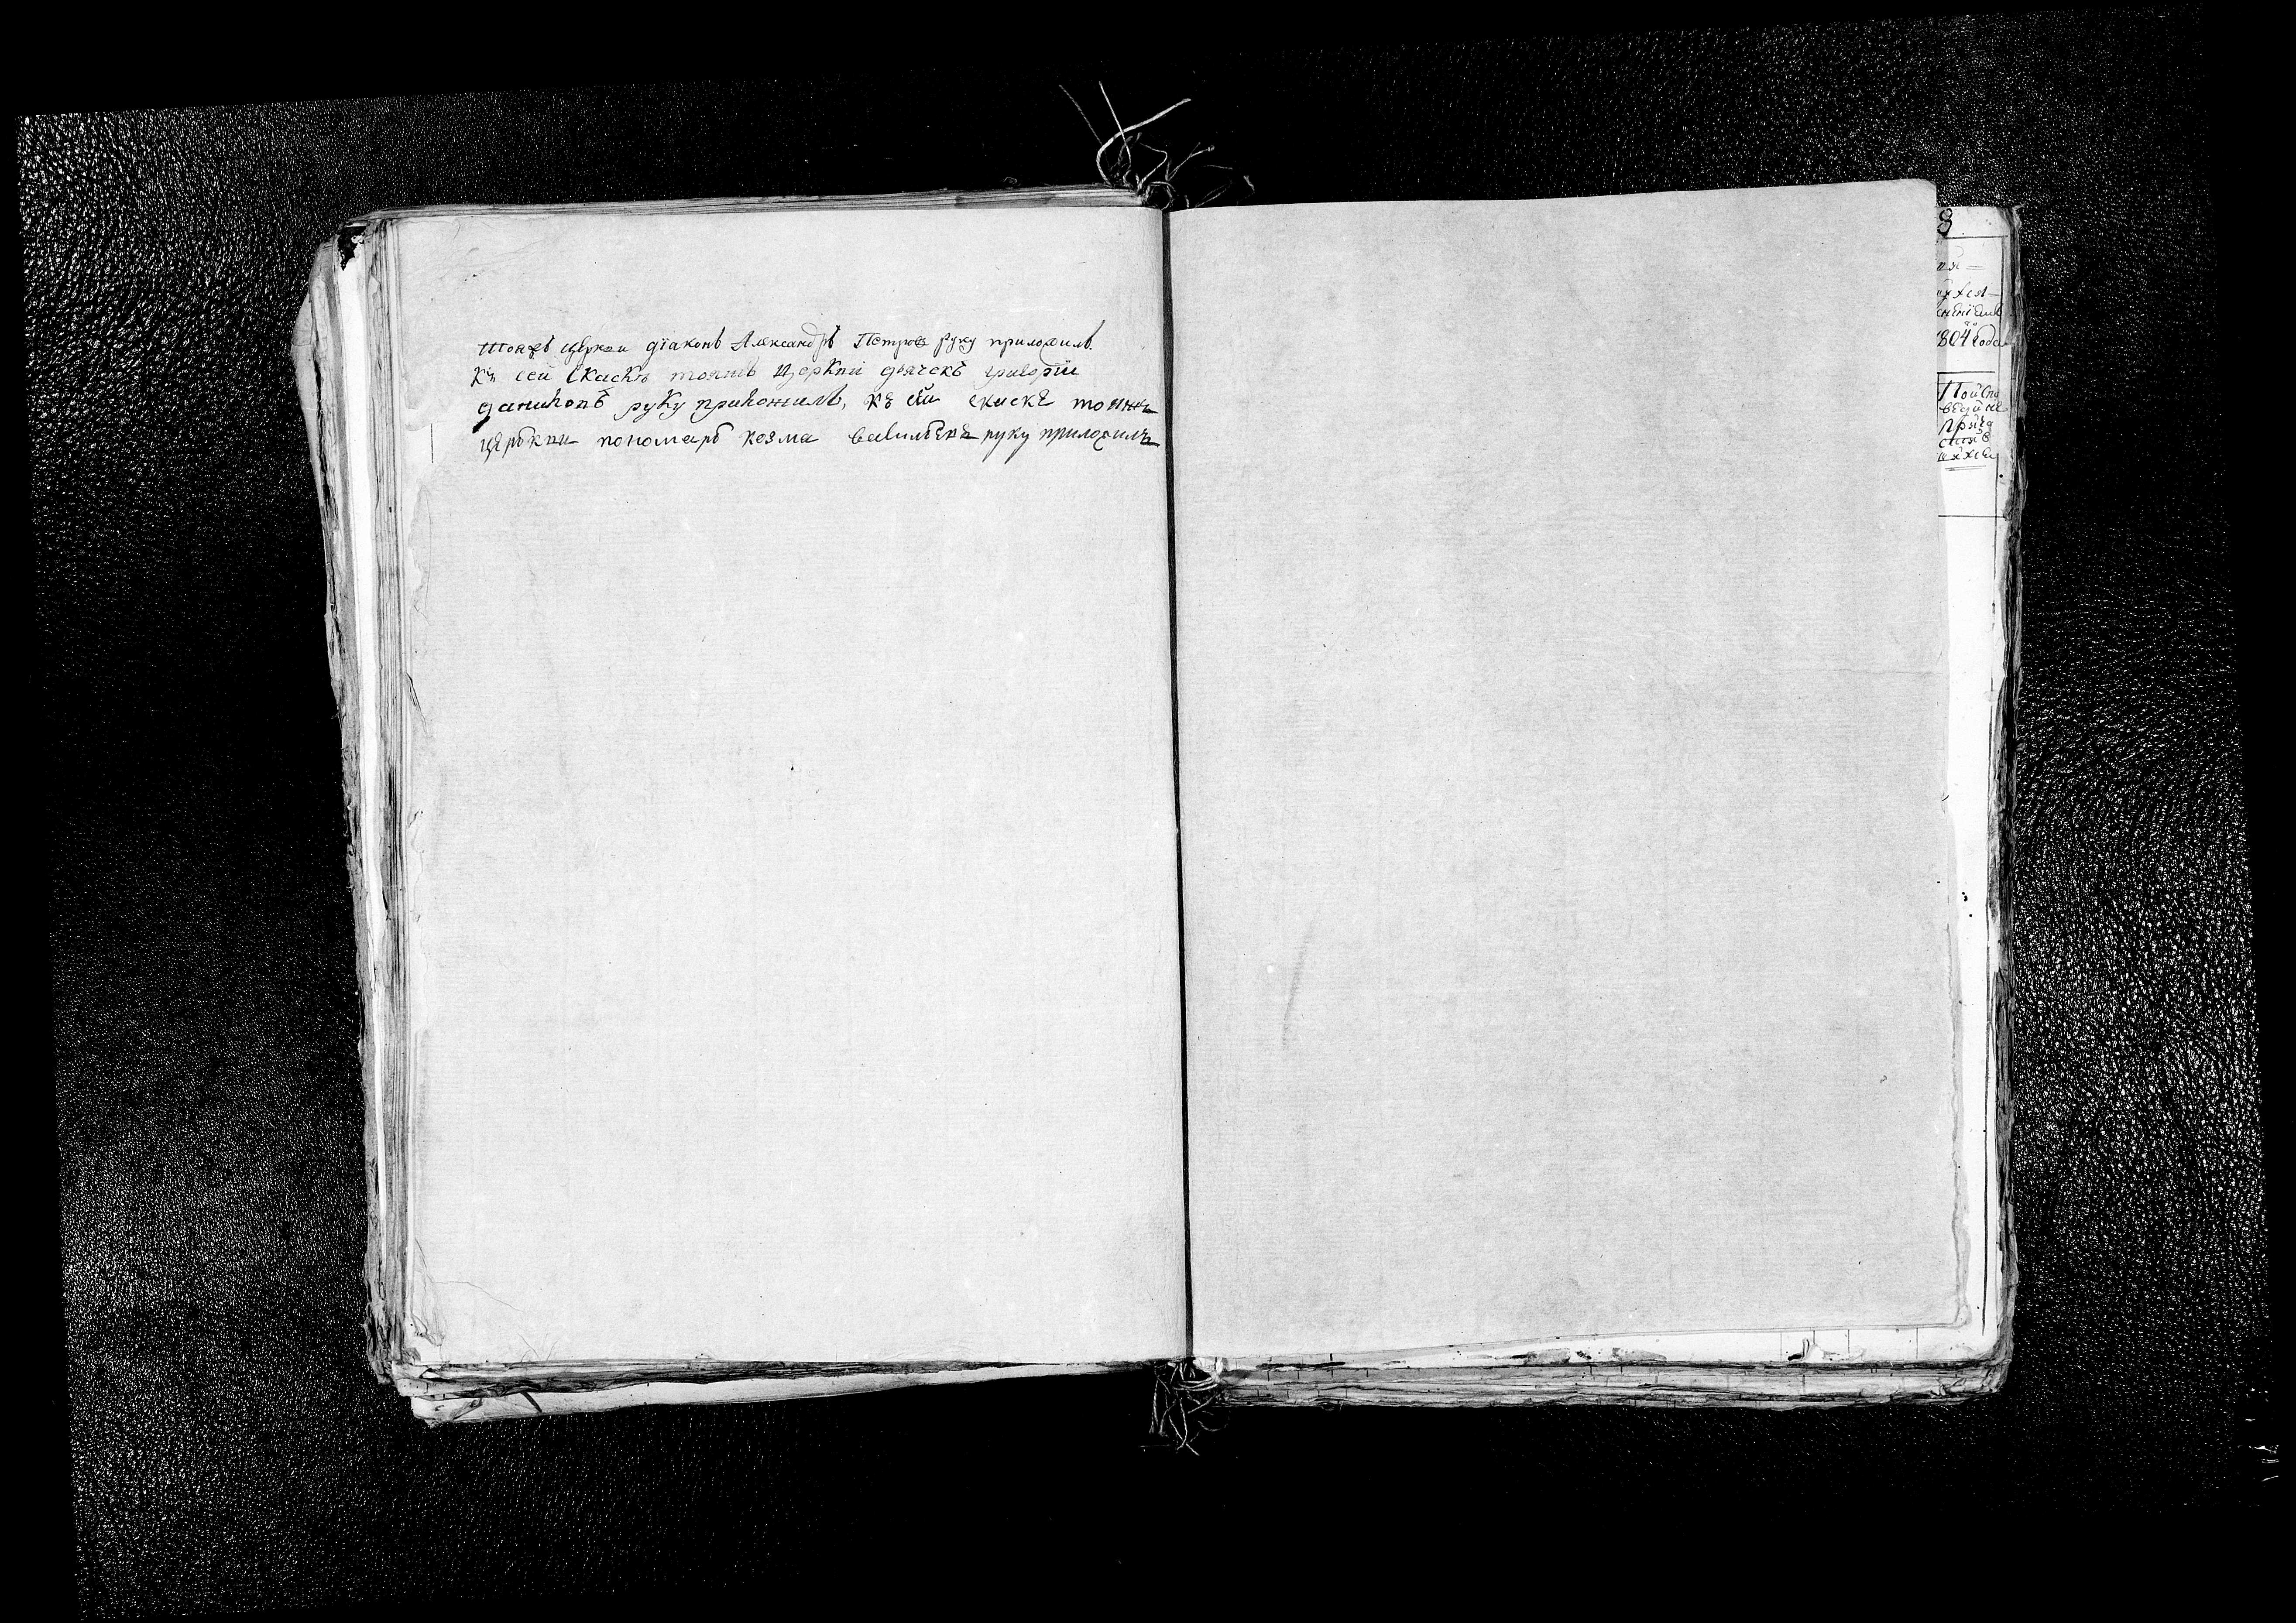 тояжъ церкви діаконъ Александръ Петровъ руку приложилъ.
къ сей скаскѣ тояжъ церкви дьячекъ григорїи
даниловъ руку приложилъ, къ сей скаске тояжъ
церькви пономарь козма руку приложилъ
8
804 года